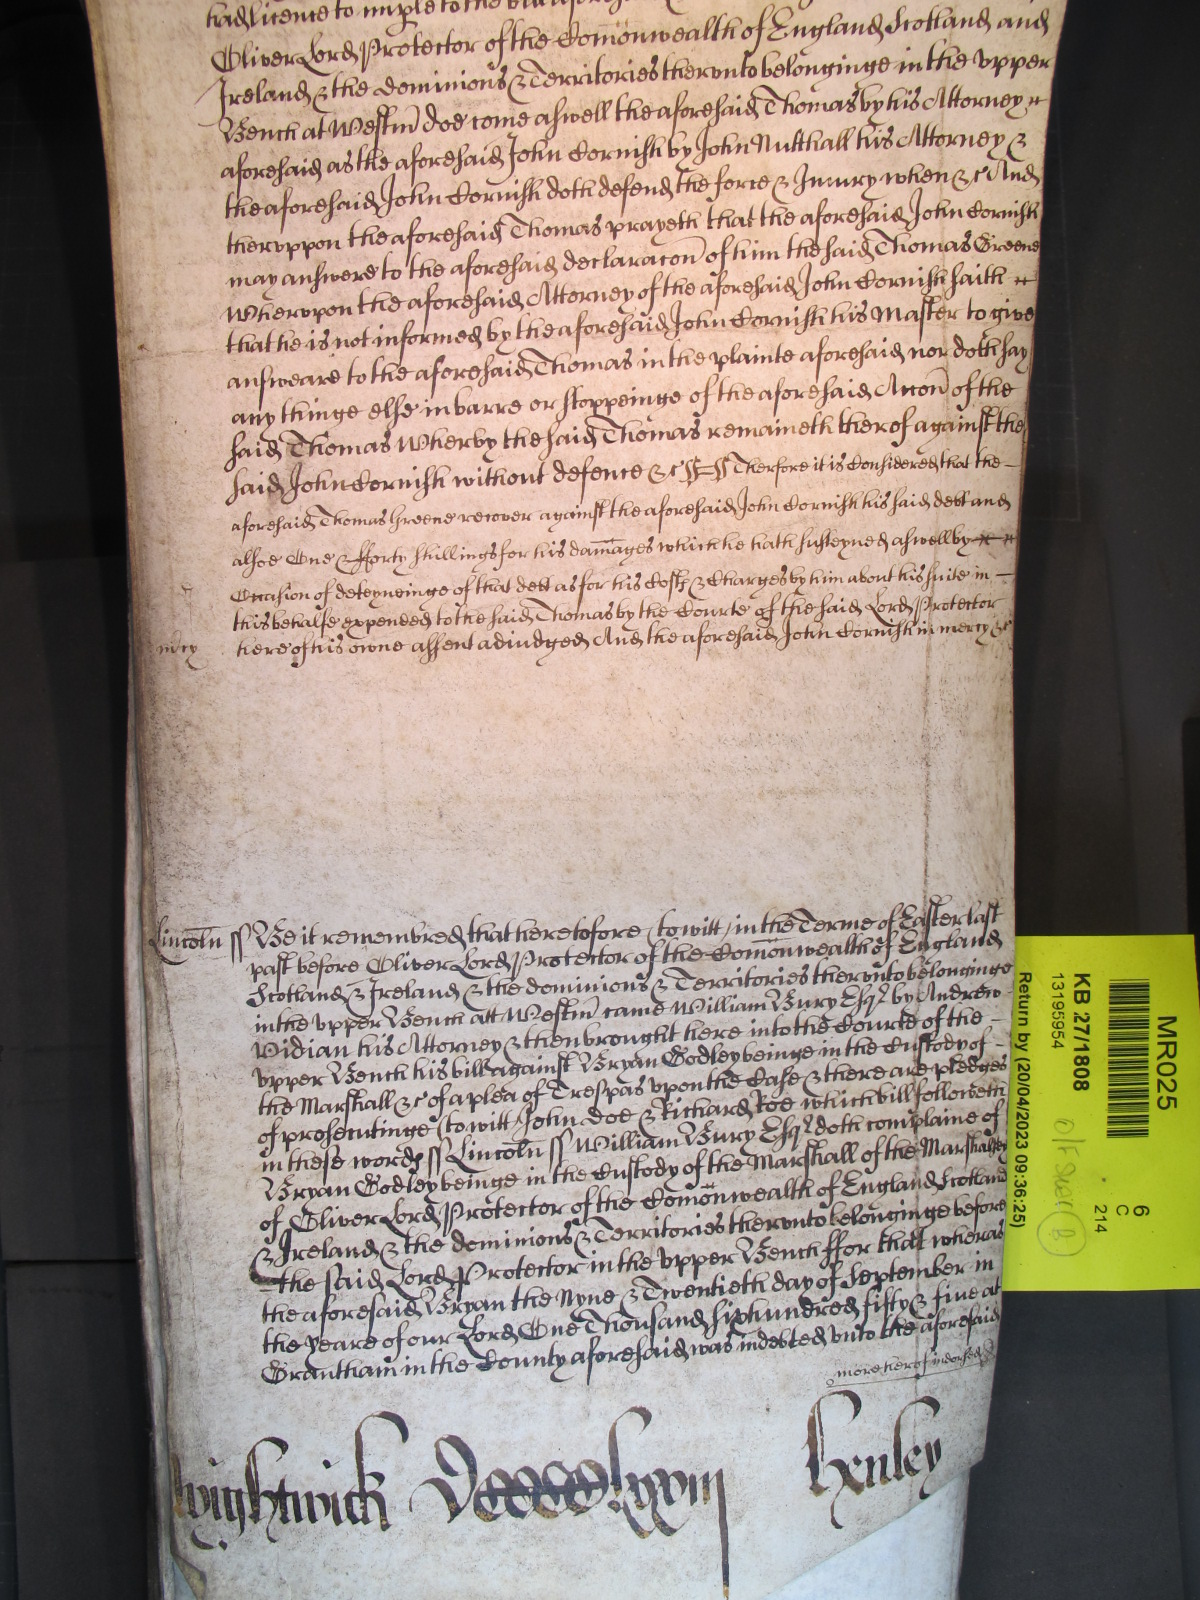 had licence to imple to the bill afores
Oliver Lord Protector of the Comonwealth of England Scotland and
Ireland & the dominions & Territories thervnto belonginge in the vpper
Bench at Westm doe come aswell the aforesaid Thomas by his Attorney
aforesaid as the aforesaid John Cornish by John Nutthall his Attorney &
the aforesaid John Cornish doth defend the force & Iniury when &c And
thervppon the aforesaid Thomas prayeth that the aforesaid John Cornish
may answere to the aforesaid declaracon of him the said Thomas Greene
Whervpon the aforesaid Attorney of the aforesaid John Cornish saith
that he is not informed by the aforesaid John Cornish his Master to give
answeare to the aforesaid Thomas in the plainte aforesaid nor doth say
any thinge else in barre or stoppeinge of the aforesaid Accon of the
said Thomas Wherby the said Thomas remaineth therof against the
said John Cornish without defence &c Therfore it is Considered that the
aforesaid Thomas Greene recover against the aforesaid John Cornish his said debt and
alsoe One & fforty shillings for his damages which he hath susteyned aswell by
Occasion of deteyneinge of that debt as for his Costs & Charges by him about his suite in
this behalfe expended to the said Thomas by the Courte of the said Lord Protector
here of his owne assent adiudged And the aforesaid John Cornish in mercy &c
mcy
Lincoln ss Be it remembred that heretofore (to witt) in the Terme of Easter last
past before Oliver Lord Protector of the Comonwealth of England
Scotland & Ireland & the dominions & Territories thervnto belonginge
in the vpper Bench att Westm came William Bury Esqr by Andrew
Vidian his Attorney & then brought here into the Courte of the
vpper Bench his bill against Bryan Godley beinge in the Custody of
the Marshall &c of a plea of Trespas vpon the Case & there are pledges
of prosecutinge (to witt) John Doe & Richard Roe which bill followeth
in these words ss Lincoln ss William Bury Esqr doth complaine of
Bryan Godley beinge in the Custody of the Marshall of the Marshalsey
of Oliver Lord Protector of the Comonwealth of England Scotland
& Ireland & the dominions & Territories thervnto belonginge before
the said Lord Protector in the vpper Bench ffor that wheras
the aforesaid Bryan the Nyne & Twentieth day of September in
the yeare of our Lord One Thousand six hundred fifty & fiue at
Grantham in the County aforesaid was indebted vnto the aforesaid
more herof indorsed
Wightwick Henley
MR025
6
C
214
KB 27/1808
13195954
Return by (20/04/2023 09:36:25)